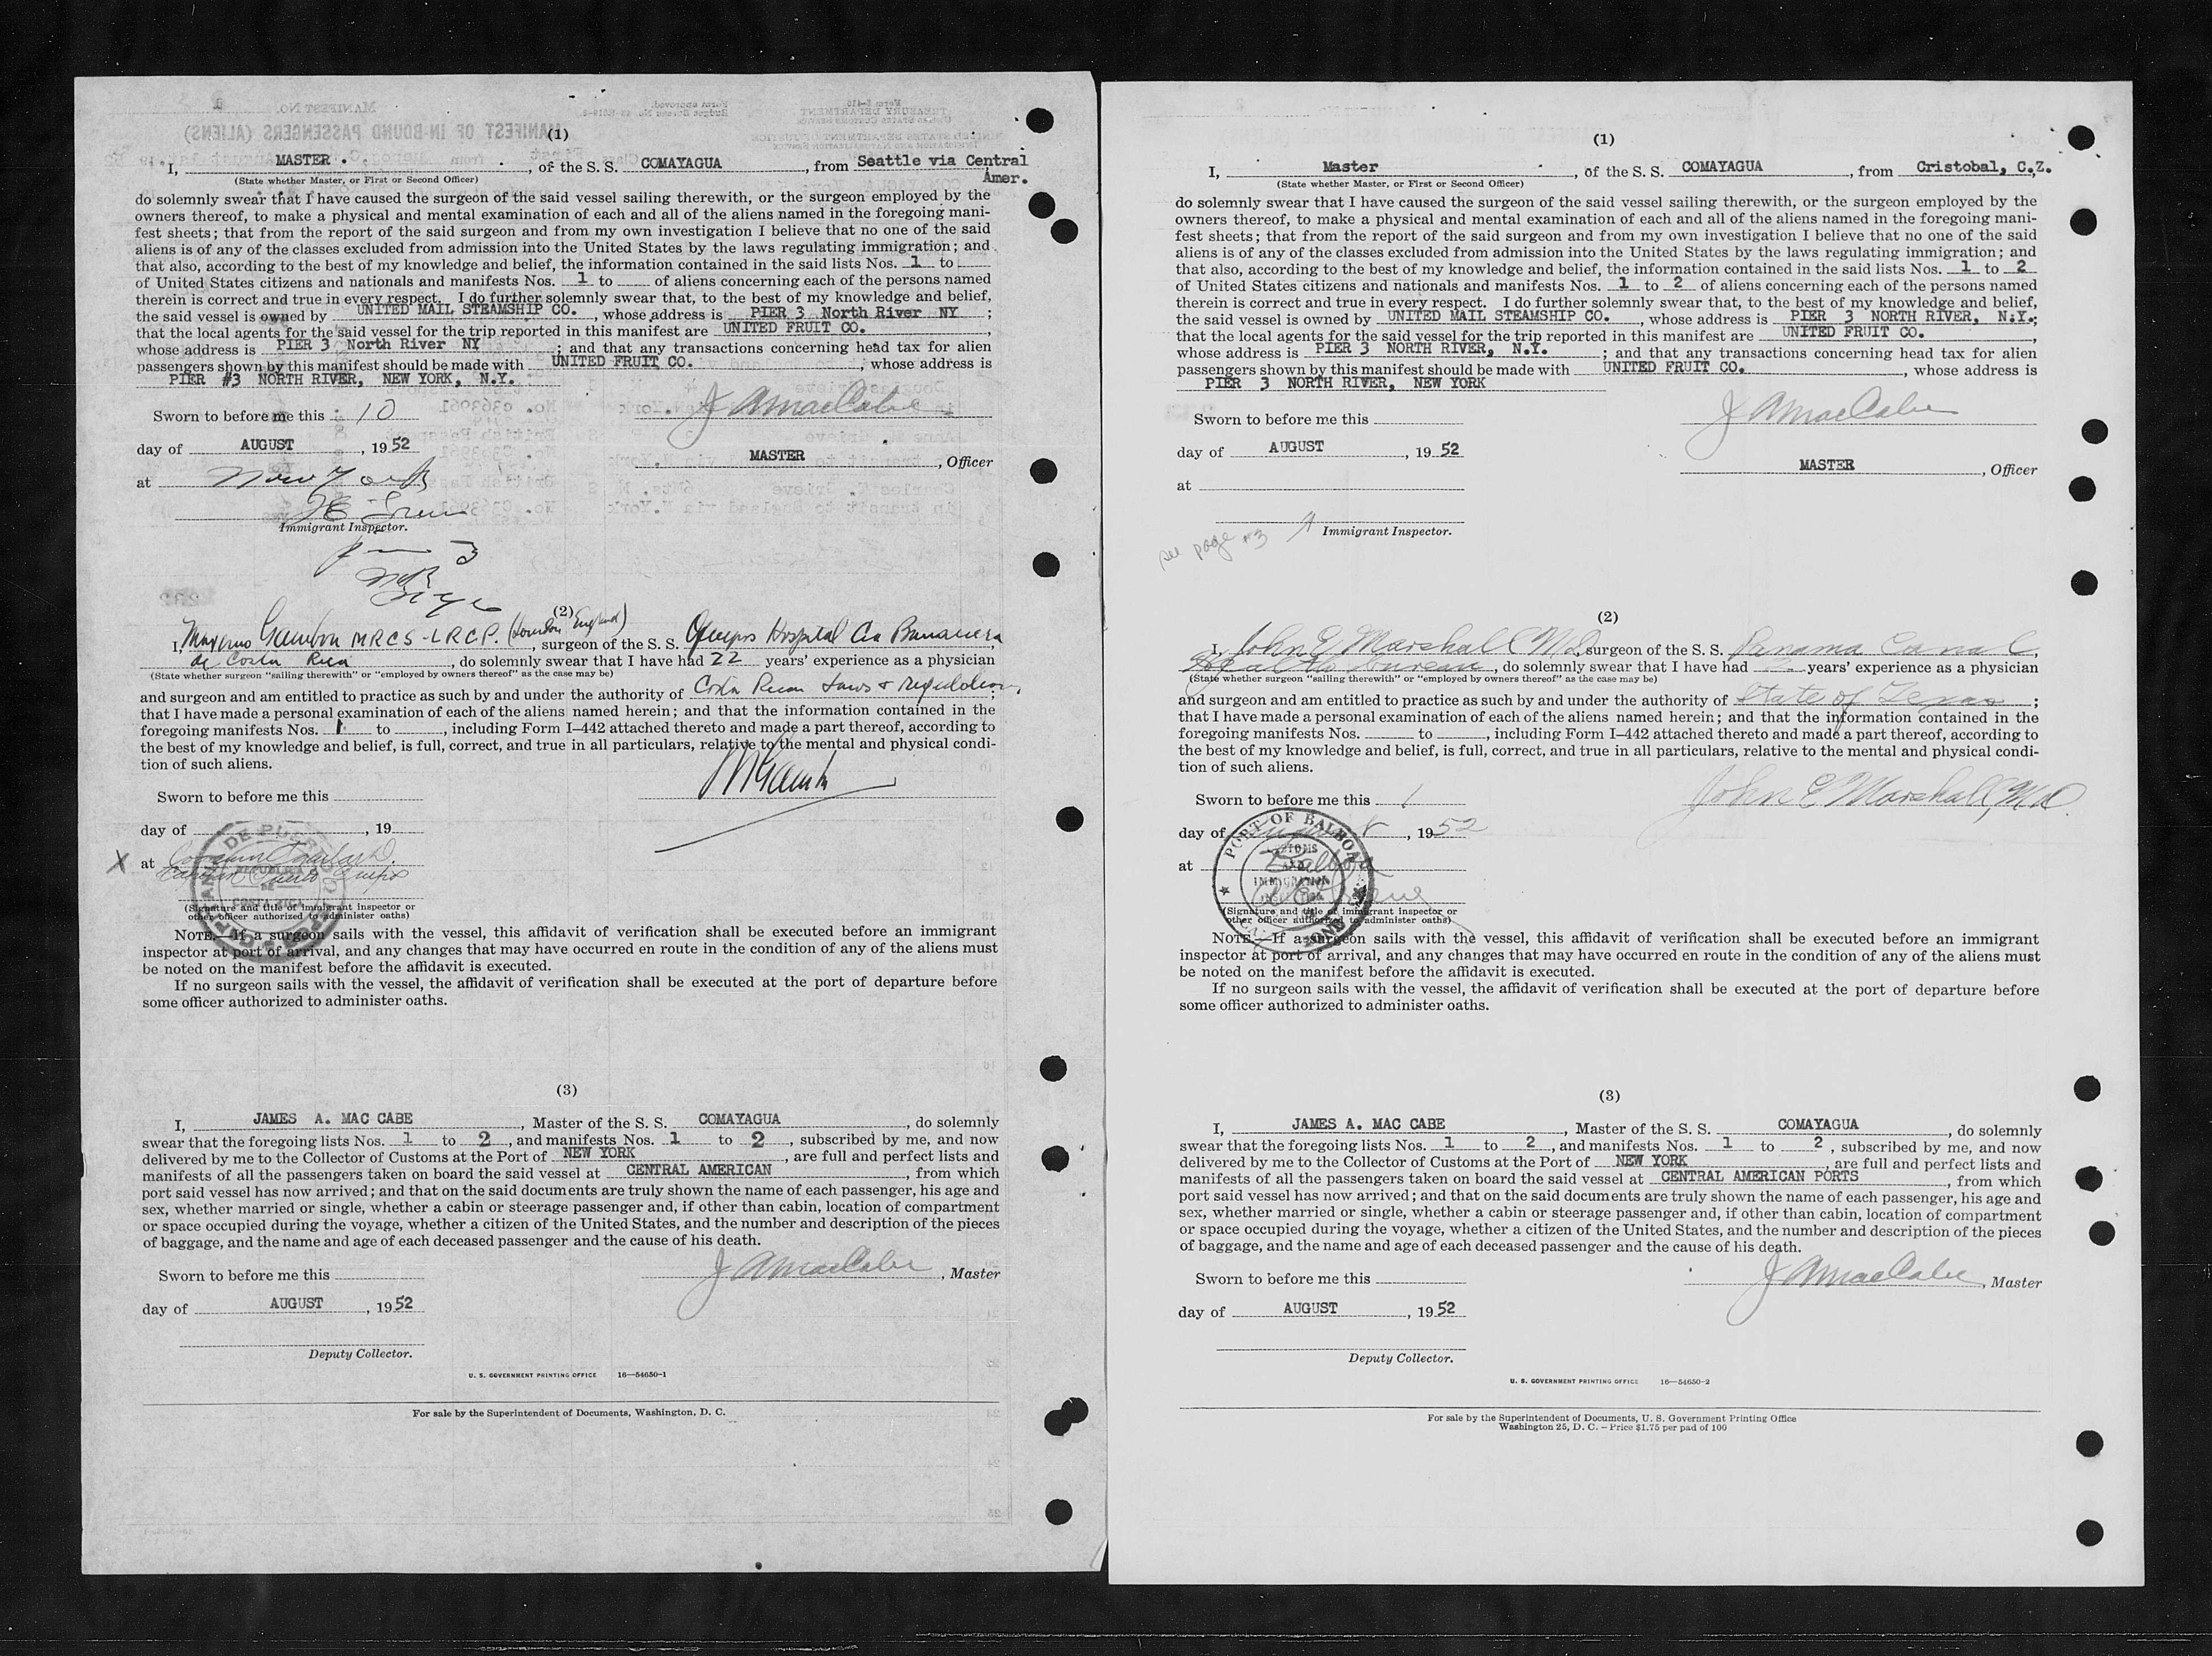 (1)
I, MASTER. , of the S. S. COMAYAGUA , from Seattle via Central
(State whether Master, or First or Second Officer) Amer.
do solemnly swear that I have caused the surgeon of the said vessel sailing therewith, or the surgeon employed by the
owners thereof, to make a physical and mental examination of each and all of the aliens named in the foregoing mani-
fest sheets; that from the report of the said surgeon and from my own investigation I believe that no one of the said
aliens is of any of the classes excluded from admission into the United States by the laws regulating immigration; and
that also, according to the best of my knowledge and belief, the information contained in the said lists Nos. 1 to
of United States citizens and nationals and manifests Nos. 1 to of aliens concerning each of the persons named
therein is correct and true in every respect. I do further solemnly swear that, to the best of my knowledge and belief,
the said vessel is owned by UNITED MAIL STEAMSHIP CO. , whose address is PIER 3 North River NY ;
that the local agents for the said vessel for the trip reported in this manifest are UNITED FRUIT CO. ,
whose address is PIER 3 North River NY ; and that any transactions concerning head tax for alien
passengers shown by this manifest should be made with UNITED FRUIT CO. , whose address is
PIER #3 NORTH RIVER, NEW YORK, N.Y.
Sworn to before me this 10 J A MacCabe
day of AUGUST , 19 52
MASTER , Officer
at New York
Immigrant Inspector.
(2)
I, Gambon MRCS-LRCP. (London England) , surgeon of the S. S. Quepos Hospital Cia Bananera
de Costa Rica , do solemnly swear that I have had 22 years' experience as a physician
(State whether surgeon "sailing therewith" or "employed by owners thereof" as the case may be)
and surgeon and am entitled to practice as such by and under the authority of Costa Rican Laws & regulations ;
that I have made a personal examination of each of the aliens named herein; and that the information contained in the
foregoing manifests Nos. 1 to , including Form I–442 attached thereto and made a part thereof, according to
the best of my knowledge and belief, is full, correct, and true in all particulars, relative to the mental and physical condi-
tion of such aliens.
Sworn to before me this
day of , 19
X at
Capitan Puerto Quepos
(Signature and title of immigrant inspector or
other officer authorized to administer oaths)
NOTE.—If a surgeon sails with the vessel, this affidavit of verification shall be executed before an immigrant
inspector at port of arrival, and any changes that may have occurred en route in the condition of any of the aliens must
be noted on the manifest before the affidavit is executed.
If no surgeon sails with the vessel, the affidavit of verification shall be executed at the port of departure before
some officer authorized to administer oaths.
(3)
I, JAMES A. MAC CABE , Master of the S. S. COMAYAGUA , do solemnly
swear that the foregoing lists Nos. 1 to 2 , and manifests Nos. 1 to 2 , subscribed by me, and now
delivered by me to the Collector of Customs at the Port of NEW YORK , are full and perfect lists and
manifests of all the passengers taken on board the said vessel at CENTRAL AMERICAN , from which
port said vessel has now arrived; and that on the said documents are truly shown the name of each passenger, his age and
sex, whether married or single, whether a cabin or steerage passenger and, if other than cabin, location of compartment
or space occupied during the voyage, whether a citizen of the United States, and the number and description of the pieces
of baggage, and the name and age of each deceased passenger and the cause of his death.
Sworn to before me this J A MacCabe , Master
day of AUGUST , 19 52
Deputy Collector.
U. S. GOVERNMENT PRINTING OFFICE 16—54650-1
For sale by the Superintendent of Documents, Washington, D. C.
(1)
I, Master , of the S. S. COMAYAGUA , from Cristobal, C.Z.,
(State whether Master, or First or Second Officer)
do solemnly swear that I have caused the surgeon of the said vessel sailing therewith, or the surgeon employed by the
owners thereof, to make a physical and mental examination of each and all of the aliens named in the foregoing mani-
fest sheets; that from the report of the said surgeon and from my own investigation I believe that no one of the said
aliens is of any of the classes excluded from admission into the United States by the laws regulating immigration; and
that also, according to the best of my knowledge and belief, the information contained in the said lists Nos. 1 to 2
of United States citizens and nationals and manifests Nos. 1 to 2 of aliens concerning each of the persons named
therein is correct and true in every respect. I do further solemnly swear that, to the best of my knowledge and belief,
the said vessel is owned by UNITED MAIL STEAMSHIP CO. , whose address is PIER 3 NORTH RIVER, N.Y. ;
that the local agents for the said vessel for the trip reported in this manifest are UNITED FRUIT CO. ,
whose address is PIER 3 NORTH RIVER, N.Y. ; and that any transactions concerning head tax for alien
passengers shown by this manifest should be made with UNITED FRUIT CO. , whose address is
PIER 3 NORTH RIVER, NEW YORK
Sworn to before me this J A MacCabe
day of AUGUST , 19 52
MASTER , Officer
at
Immigrant Inspector.
see page #3
(2)
I, John E Marshall M.D. , surgeon of the S. S. Panama Canal ,
Health Bureau , do solemnly swear that I have had years' experience as a physician
(State whether surgeon "sailing therewith" or "employed by owners thereof" as the case may be)
and surgeon and am entitled to practice as such by and under the authority of State of Texas ;
that I have made a personal examination of each of the aliens named herein; and that the information contained in the
foregoing manifests Nos. to , including Form I–442 attached thereto and made a part thereof, according to
the best of my knowledge and belief, is full, correct, and true in all particulars, relative to the mental and physical condi-
tion of such aliens.
Sworn to before me this 1 John E Marshall, M.D.
day of , 19 52
at Balboa
PORT OF BALBOA
(Signature and title of immigrant inspector or
other officer authorized to administer oaths)
NOTE.—If a surgeon sails with the vessel, this affidavit of verification shall be executed before an immigrant
inspector at port of arrival, and any changes that may have occurred en route in the condition of any of the aliens must
be noted on the manifest before the affidavit is executed.
If no surgeon sails with the vessel, the affidavit of verification shall be executed at the port of departure before
some officer authorized to administer oaths.
(3)
I, JAMES A. MAC CABE , Master of the S. S. COMAYAGUA , do solemnly
swear that the foregoing lists Nos. 1 to 2 , and manifests Nos. 1 to 2 , subscribed by me, and now
delivered by me to the Collector of Customs at the Port of NEW YORK , are full and perfect lists and
manifests of all the passengers taken on board the said vessel at CENTRAL AMERICAN PORTS , from which
port said vessel has now arrived; and that on the said documents are truly shown the name of each passenger, his age and
sex, whether married or single, whether a cabin or steerage passenger and, if other than cabin, location of compartment
or space occupied during the voyage, whether a citizen of the United States, and the number and description of the pieces
of baggage, and the name and age of each deceased passenger and the cause of his death.
Sworn to before me this J A MacCabe , Master
day of AUGUST , 19 52
Deputy Collector.
U. S. GOVERNMENT PRINTING OFFICE 16—54650-2
For sale by the Superintendent of Documents, U. S. Government Printing Office
Washington 25, D. C. – Price $1.75 per pad of 100